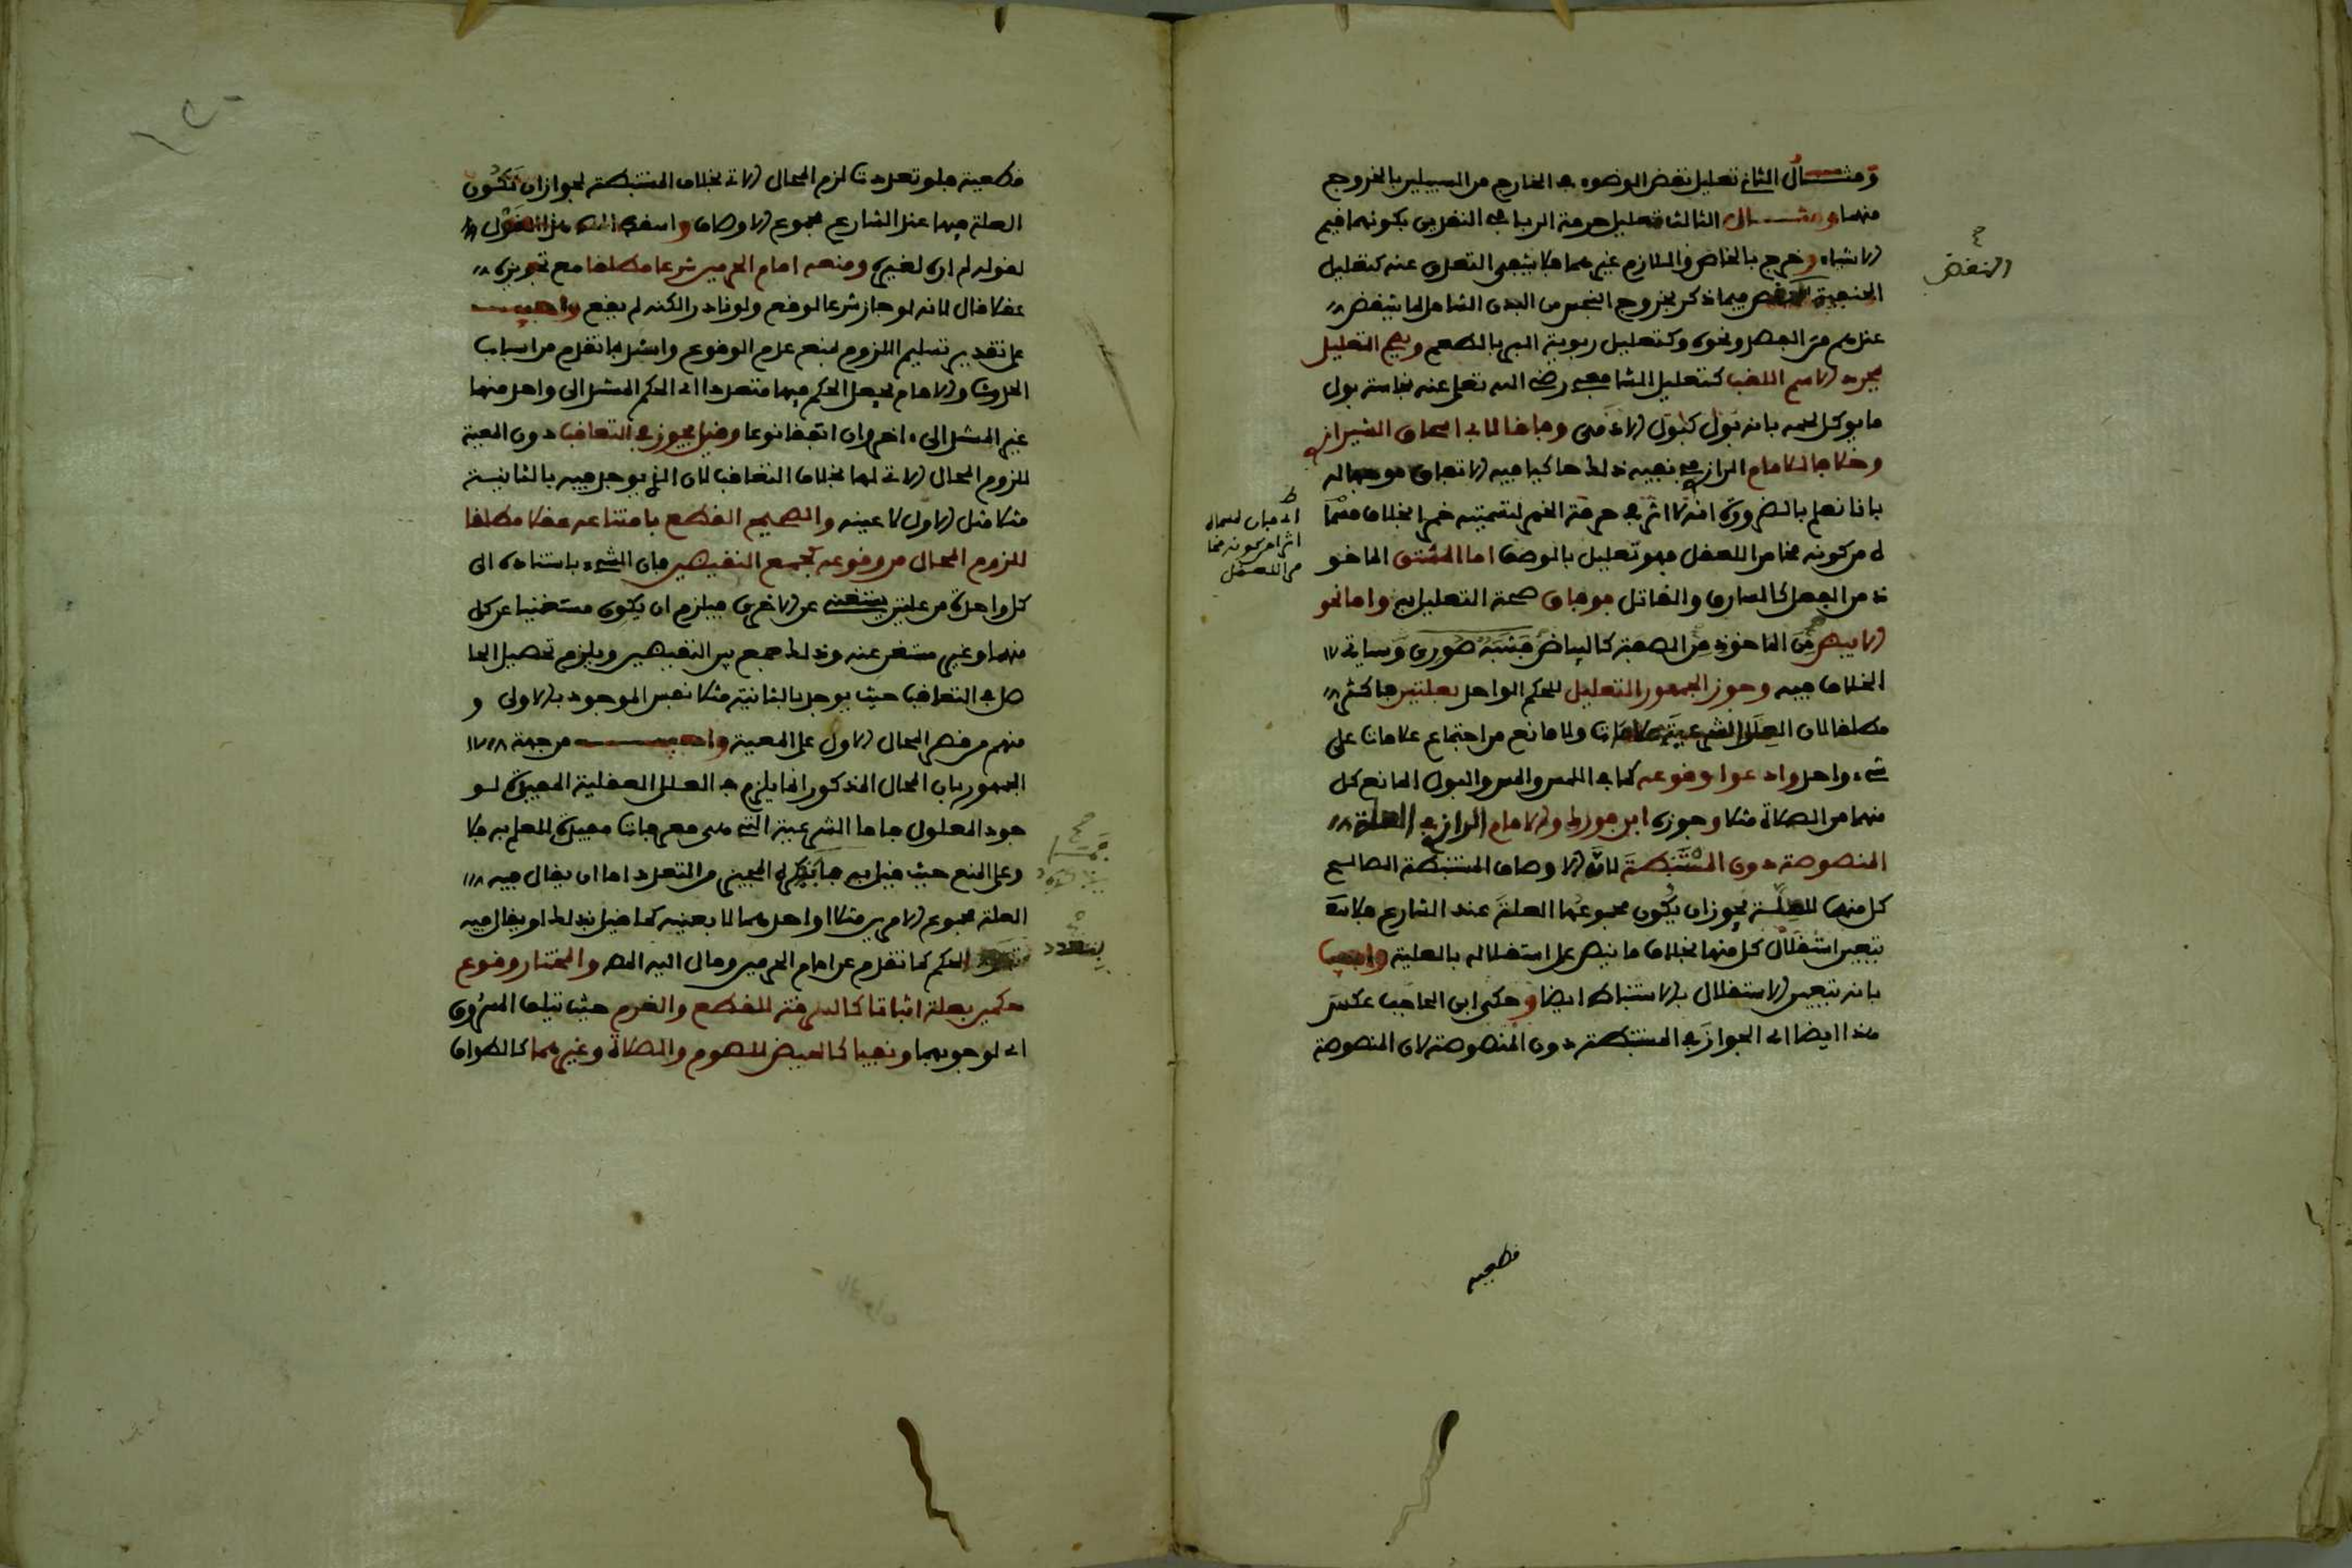 ومثال الثاني تعليل نقض الوضوء في الخارج من السبيلين بالخروج
منهما ومثال الثالث تعليل حرمة الربا في النقدين بكونهما قيم
الاشياء وخرج بالخاص والملازم غيرهما فلا ينتفي التعدي عنه كتعليل
الحنفية النقض فيما ذكر بخروج النجس من البدن الشامل لما ينقض
النقض
عندهم من الفصد ونحوه وكتعليل ربوية البر بالطعم ويصح التعليل
بمجرد الاسم اللقب كتعليل الشافعي رضي الله تعلى عنه نجاسة بول
ما يوكل لحمه بانه بول كبول الادمي وفاقا لابي اسحاق الشيرازي
وخلافا للامام الرازي في نفيه ذلك حاكيا فيه الاتفاق موجها له
بانا نعلم بالضرورة انه لا اثر في حرمة الخمر لتسميته خمرا بخلاف مسما
ه من كونه مخامرا للعقل فهو تعليل بالوصف اما المشتق الماخو
ذ من الفعل كالسارق والقاتل فوفاق صحة التعليل به واما نحو
الابيض من الماخوذ من الصفة كالبياض فشبه صوري وسياتي
الخلاف فيه وجوز الجمهور التعليل للحكم الواحد بعلتين فاكثر
مطلقا لان العلل الشرعية علامات ولا مانع من اجتماع علامات على
شيء واحد وادعوا وقوعه كما في اللمس والمس والبول المانع كل
منها من الصلاة مثلا وجوزه ابن فورك والامام الرازي في العلة
المنصوصة دون المستنبطة لان الاوصاف المستنبطة الصالح
كل منها للعلية يجوز ان يكون مجموعها العلة عند الشارع فلا
يتعين استقلال كل منها بخلاف ما نص على استقلاله بالعلية واجيب
بانه يتعين الاستقلال بالاستنباط ايضا وحكى ابن الحاجب عكس
هذا ايضا اي الجواز في المستنبطة دون المنصوصة لان المنصوصة
قطعية
قطعية فلو تعددت لزم المحال الاتي بخلاف المستنبطة لجواز ان تكون
العلة فيها عند الشارع مجموع الاوصاف واسقط هذا القول
لقوله لم اره لغيره ومنعه امام الحرمين شرعا مطلقا مع تجويزه
عقلا قال لانه لو جاز شرعا لوقع ولو نادرا لكنه لم يقع واجيب
على تقدير تسليم اللزوم بمنع عدم الوقوع واسند بما تقدم من اسباب
الحدث والامام يجعل الحكم فيها متعددا اي الحكم المستند الى واحد منها
غير المستند الى اخر وان اتفقا نوعا وقيل يجوز في التعاقب دون المعية
للزوم المحال الاتي لها بخلاف التعاقب لان الذي يوجد فيه بالثانية
مثلا مثل الاول لا عينه والصحيح القطع بامتناعه عقلا مطلقا
للزوم المحال من وقوعه كجمع النقيضين فان الشيء باستناده الى
كل واحدة من علتين يستغني عن الاخرى فيلزم ان يكون مستغنيا عن كل
منهما وغير مستغن عنه وذلك جمع بين النقيضين ويلزم تحصيل الحا
صل في التعاقب حيث يوجد بالثانية مثلا نفس الموجود بالاولى و
منهم من قصر المحال الاول على المعية واجيب من جهة
الجمهور بان المحال المذكور انما يلزم في العلل العقلية المفيدة لو
جود المعلول فاما الشرعية التي هي معرفات مفيدة للعلم به فلا
وعلى المنع حيث قيل به فما يذكره المجيز من التعدد اما ان يقال فيه
العلة مجموع الامرين مثلا او احدهما لا بعينه كما قيل بذلك او يقال فيه
بتعدد الحكم كما تقدم عن امام الحرمين ومال اليه المص والمختار وقوع
حكمين بعلة اثباتا كالسرقة للقطع والغرم حيث يتلف المسروق
اي لوجوبهما ونفيا كالحيض للصوم والصلاة وغيرهما كالطواف